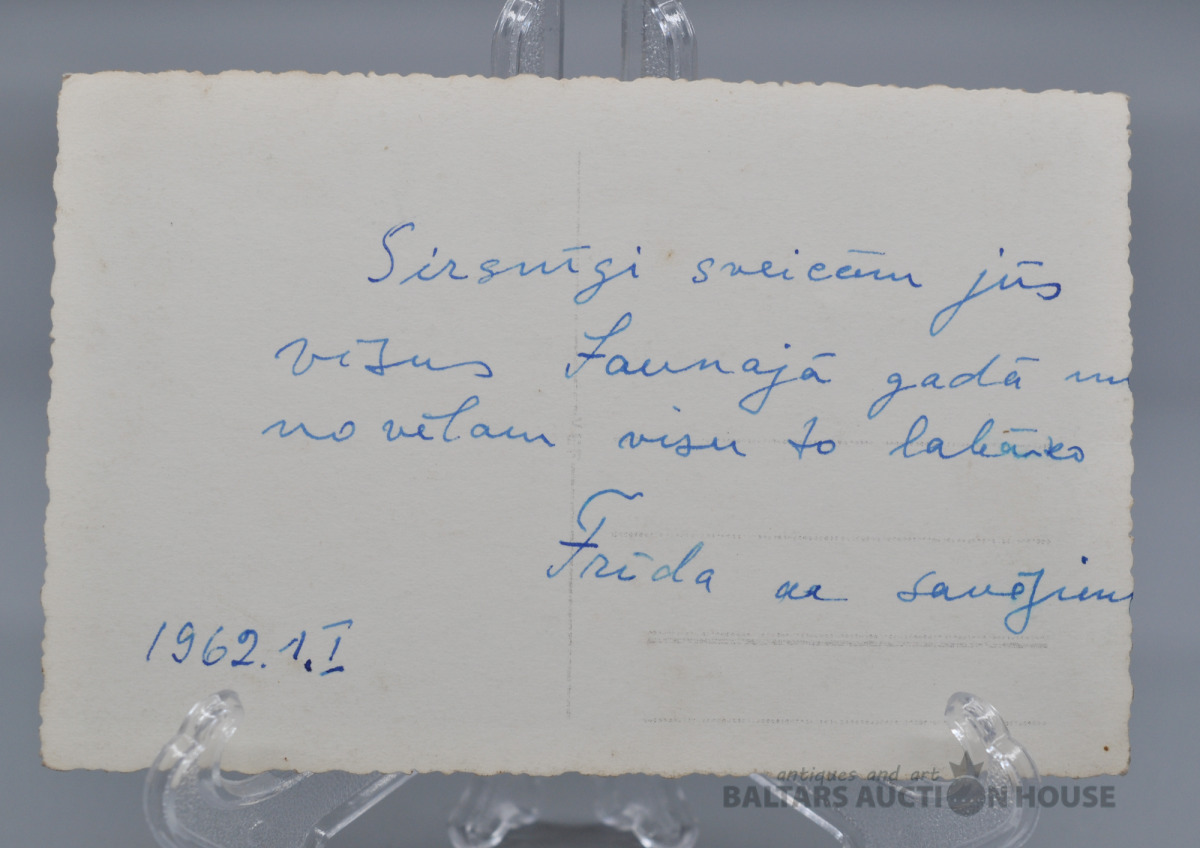 Sirsnīgi sveicām jūs
visus Jaunajā gadā un
novēlam visu to labāko
Frīda ar savējiem
1962.1.I
antiques and art
BALTARS AUCTION HOUSE